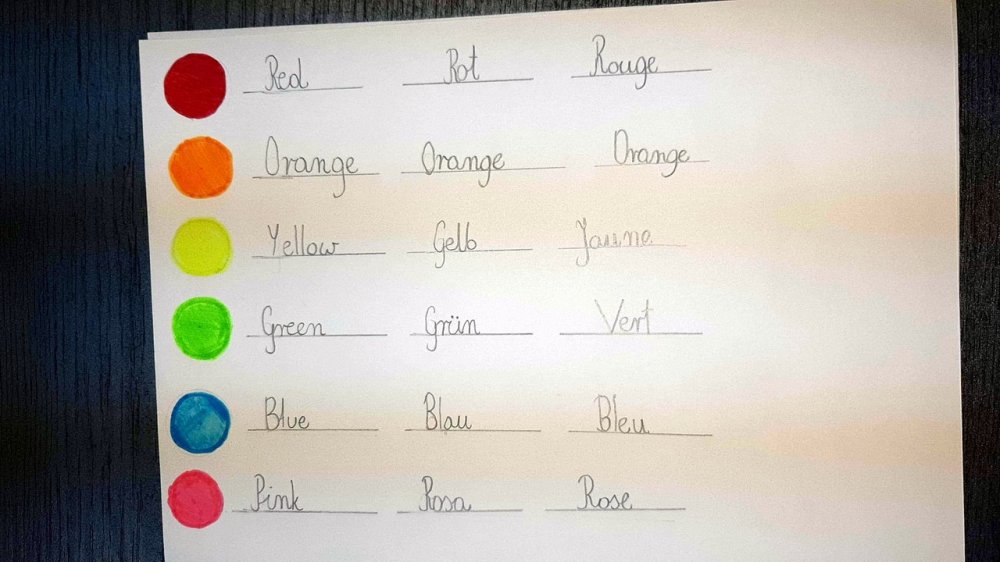 Red Rot Rouge
Orange Orange Orange
Yellow Gelb Jaune
Green Grün Vert
Blue Blau Bleu
Pink Rosa Rose